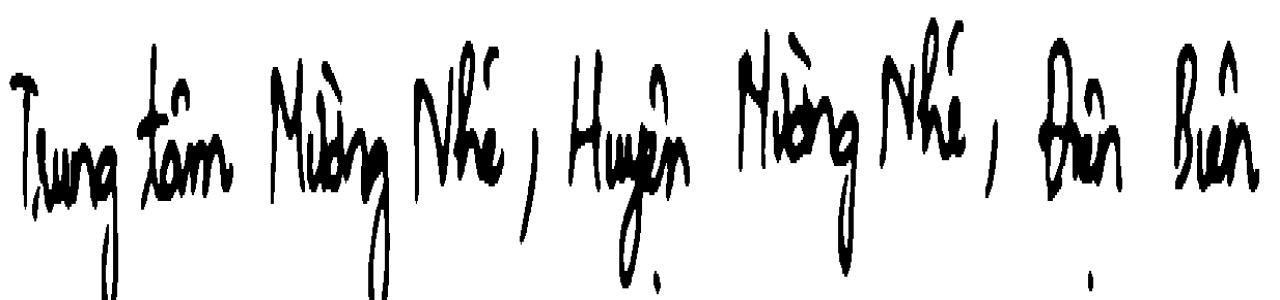 Trung tâm Mường Nhé, Huyện Mường Nhé, Điện Biên